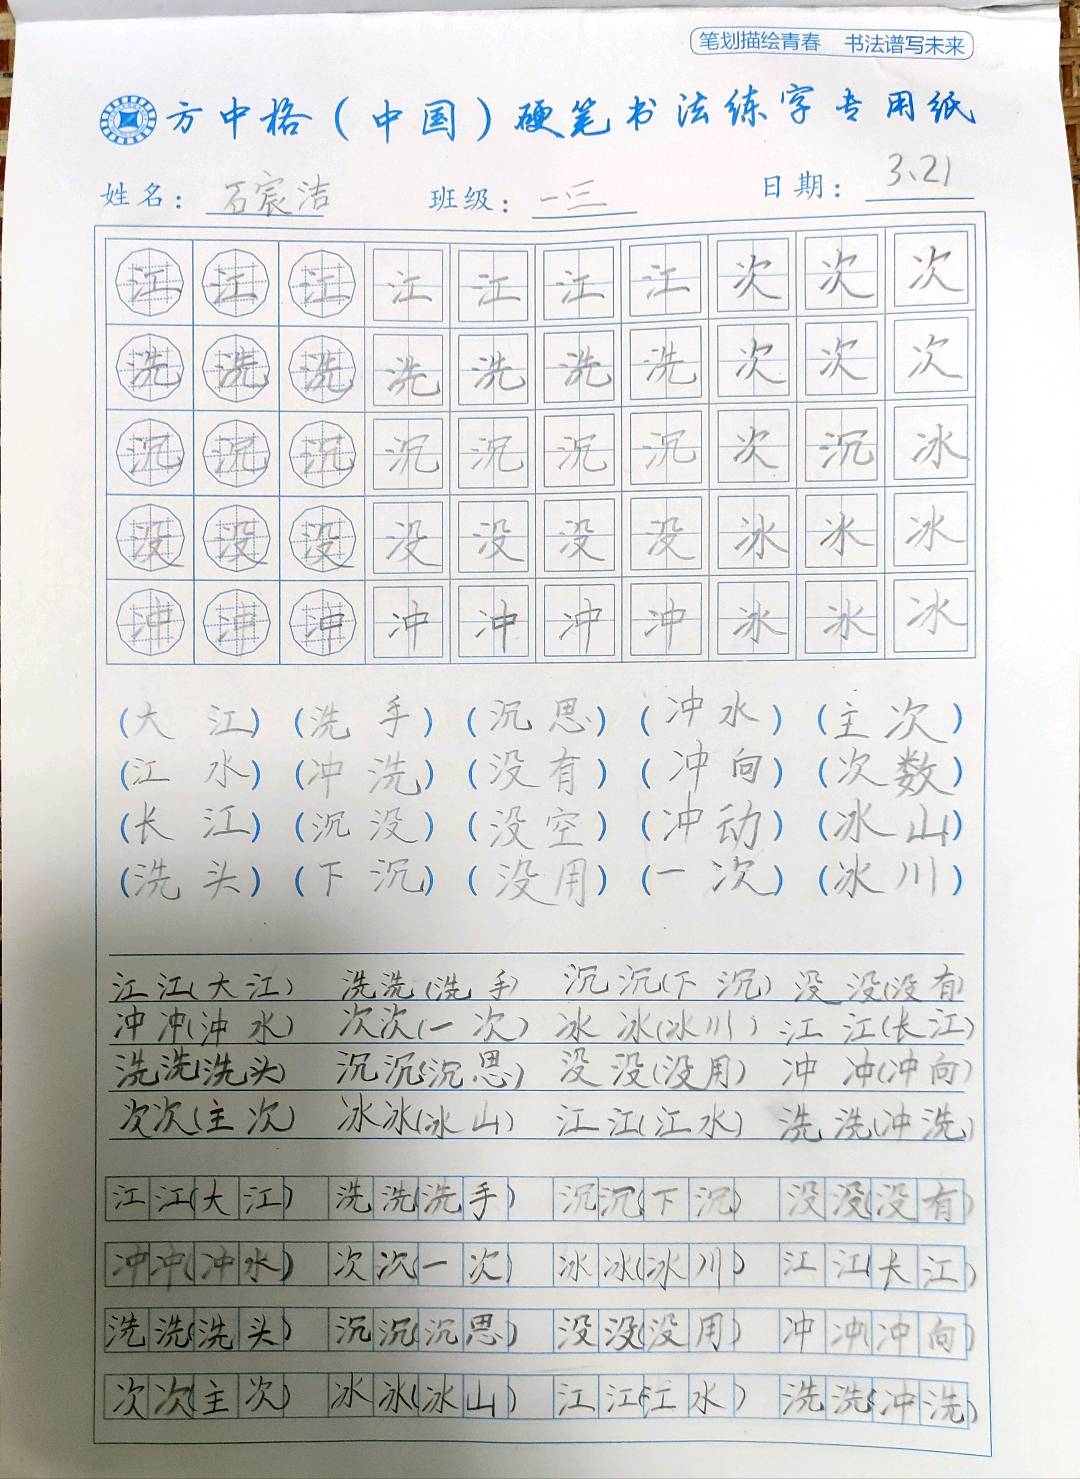 笔划描绘青春 书法谱写未来
方中格(中国)硬笔书法练字专用纸
姓名: 石宸洁 班级: 一三 日期: 3.21
江 江 江 江 江 江 江 次 次 次
洗 洗 洗 洗 洗 洗 洗 次 次 次
沉 沉 沉 沉 沉 沉 沉 次 沉 冰
没 没 没 没 没 没 没 冰 冰 冰
冲 冲 冲 冲 冲 冲 冲 冰 冰 冰
(大江) (洗手) (沉思) (冲水) (主次)
(江水) (冲洗) (没有) (冲向) (次数)
(长江) (沉没) (没空) (冲动) (冰山)
(洗头) (下沉) (没用) (一次) (冰川)
江江(大江) 洗洗(洗手) 沉沉(下沉) 没没(没有)
冲冲(冲水) 次次(一次) 冰冰(冰川) 江江(长江)
洗洗(洗头) 沉沉(沉思) 没没(没用) 冲冲(冲向)
次次(主次) 冰冰(冰山) 江江(江水) 洗洗(冲洗)
江江(大江) 洗洗(洗手) 沉沉(下沉) 没没(没有)
冲冲(冲水) 次次(一次) 冰冰(冰川) 江江(长江)
洗洗(洗头) 沉沉(沉思) 没没(没用) 冲冲(冲向)
次次(主次) 冰冰(冰山) 江江(江水) 洗洗(冲洗)